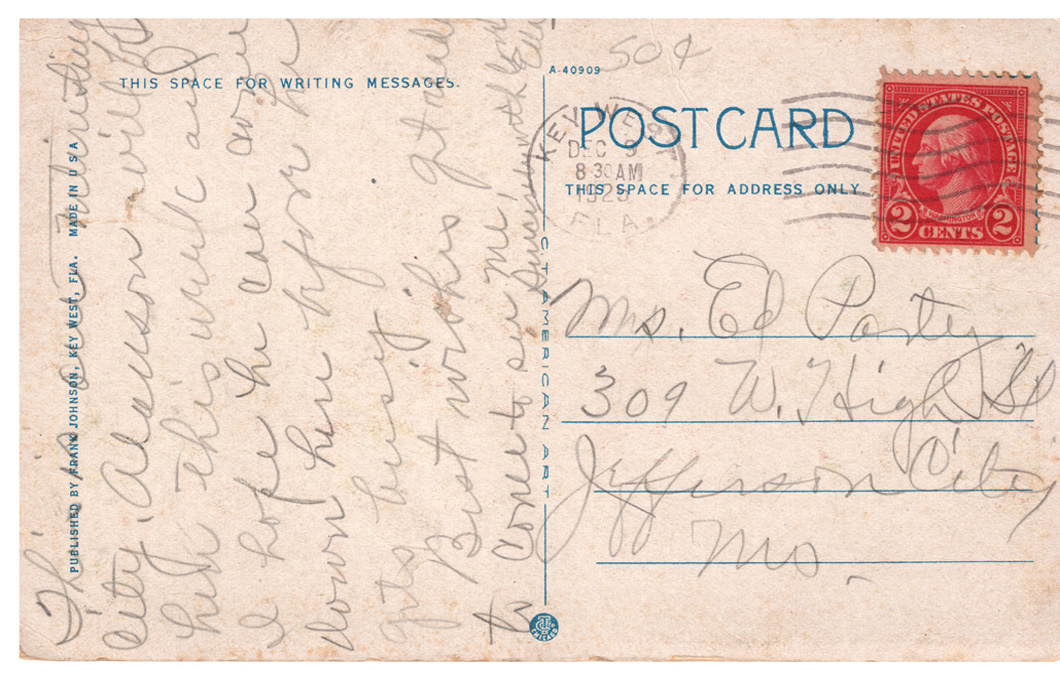 THIS SPACE FOR WRITING MESSAGES.
This is an interesting
city. Alamson will be
here this week and
I hope he can come
down here before he
gets busy.
Best wishes get ready
to come to see me,
PUBLISHED BY FRANK JOHNSON, KEY WEST, FLA. MADE IN U S A
C. T. AMERICAN ART
CHICAGO
50¢
A-40909
POST CARD
THIS SPACE FOR ADDRESS ONLY.
KEY WEST
DEC 9
8 30 AM
FLA.
UNITED STATES POSTAGE
WASHINGTON
2 CENTS 2
Mrs. Ed
309 W. High St
Jefferson City
Mo.